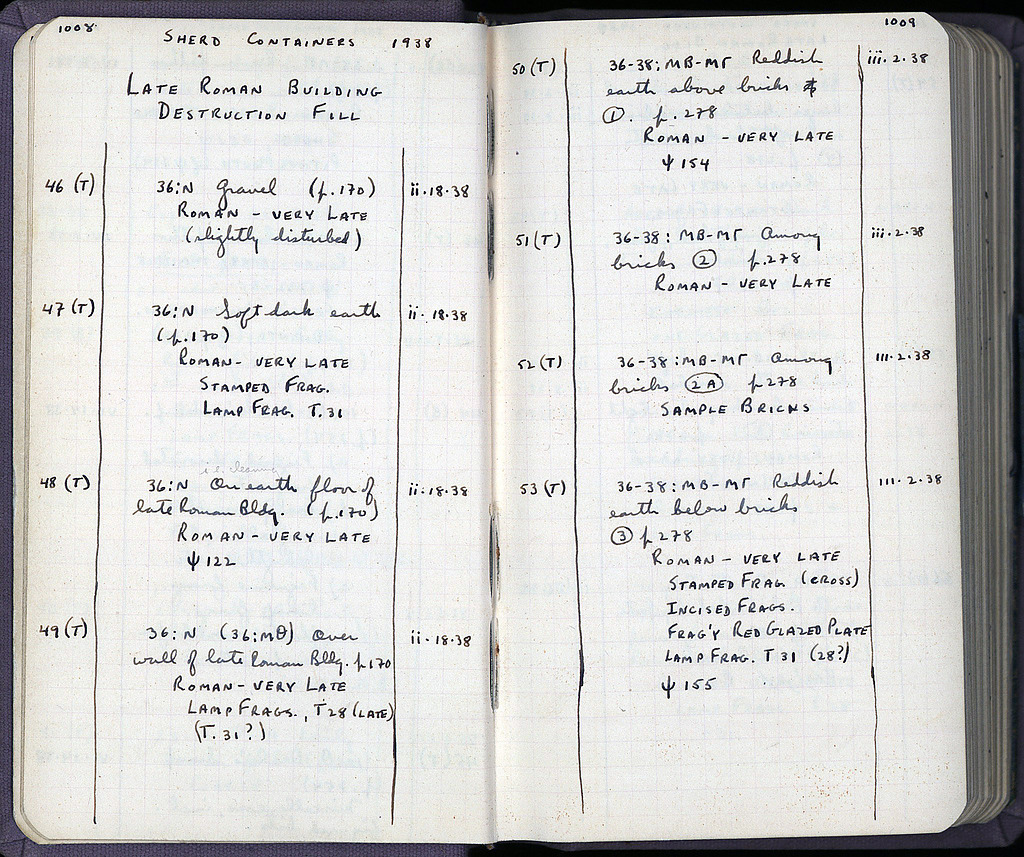 1008
SHERD CONTAINERS 1938
LATE ROMAN BUILDING
DESTRUCTION FILL
46 (T) 36:N Gravel (p.170) ii.18.38
ROMAN - VERY LATE
(slightly disturbed)
47 (T) 36:N Soft dark earth ii.18.38
(p.170)
ROMAN - VERY LATE
STAMPED FRAG.
LAMP FRAG. T.31
i.e. cleaning
48 (T) 36:N On earth floor of ii.18.38
late Roman Bldg. (p.170)
ROMAN - VERY LATE
ψ 122
49 (T) 36:N (36:ΜΘ) Over ii.18.38
wall of late Roman Bldg. p.170
ROMAN - VERY LATE
LAMP FRAGS., T 28 (LATE)
(T. 31?)
1009
50 (T) 36-38: ΜΒ-ΜΓ Reddish iii.2.38
earth above bricks
①. p.278
ROMAN - VERY LATE
ψ 154
51 (T) 36-38: ΜΒ-ΜΓ Among iii.2.38
bricks ② p.278
ROMAN - VERY LATE
52 (T) 36-38: ΜΒ-ΜΓ Among III.2.38
bricks (2A) p.278
SAMPLE BRICKS
53 (T) 36-38: ΜΒ-ΜΓ Reddish III.2.38
earth below bricks
③ p.278
ROMAN - VERY LATE
STAMPED FRAG (CROSS)
INCISED FRAGS.
FRAG'Y RED GLAZED PLATE
LAMP FRAG. T 31 (28?)
ψ 155